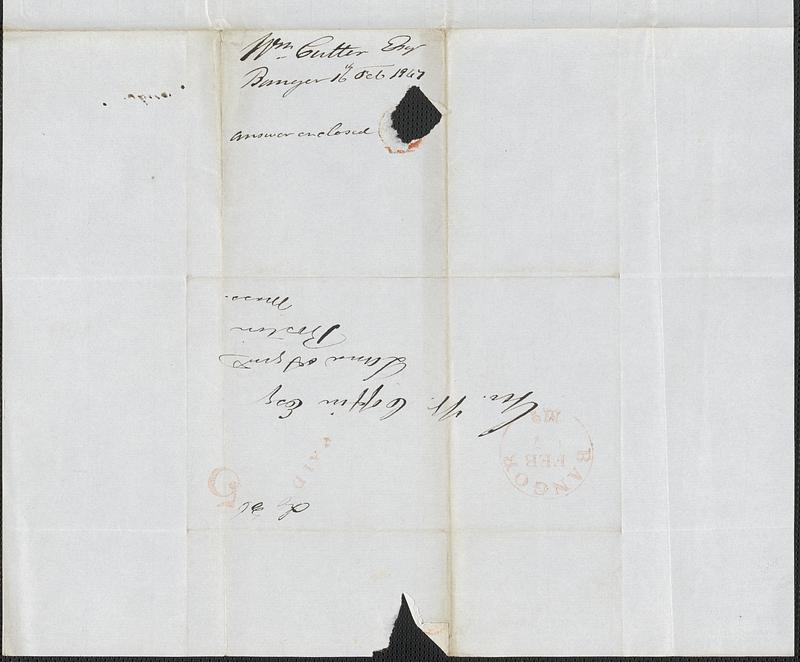 Wm Cutter Esq
Bangor 16th Feb 1847
answer enclosed
Geo. W. Coffin Esq
Land Agent
Boston
Mass.
PAID
5
BANGOR
FEB
Me